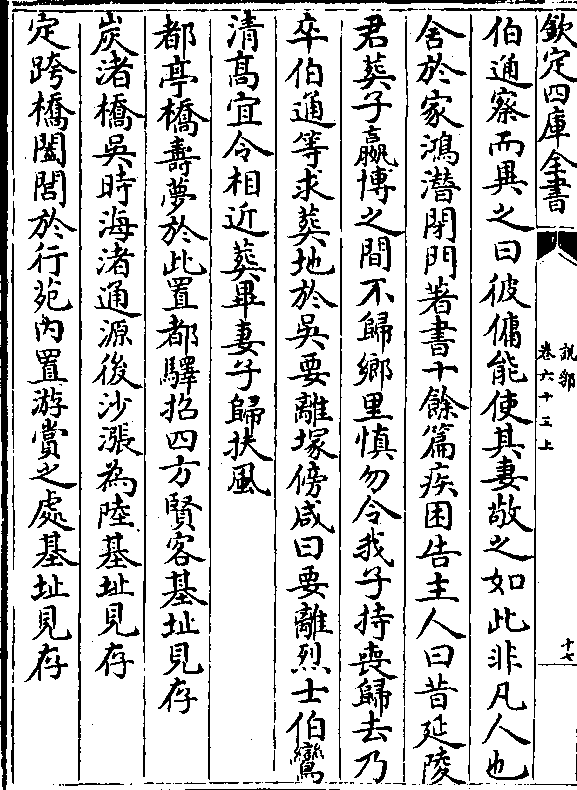 欽定四庫全書
說郛
卷六十三上
十七
伯通察而異之曰彼傭能使其妻敬之如此非凡人也
舍於家鴻潛閉門著書十餘篇疾困告主人曰昔延陵
君葬子嬴博之間不歸鄉里慎勿令我子持喪歸去乃
卒伯通等求葬地於吳要離塚傍咸曰要離烈士伯鸞
清高宜令相近葬畢妻子歸扶風
都亭橋壽夢於此置都驛招四方賢客基址見存
炭渚橋吳時海渚通源後沙漲為陸基址見存
定跨橋闔閭於行苑內置游賞之處基址見存